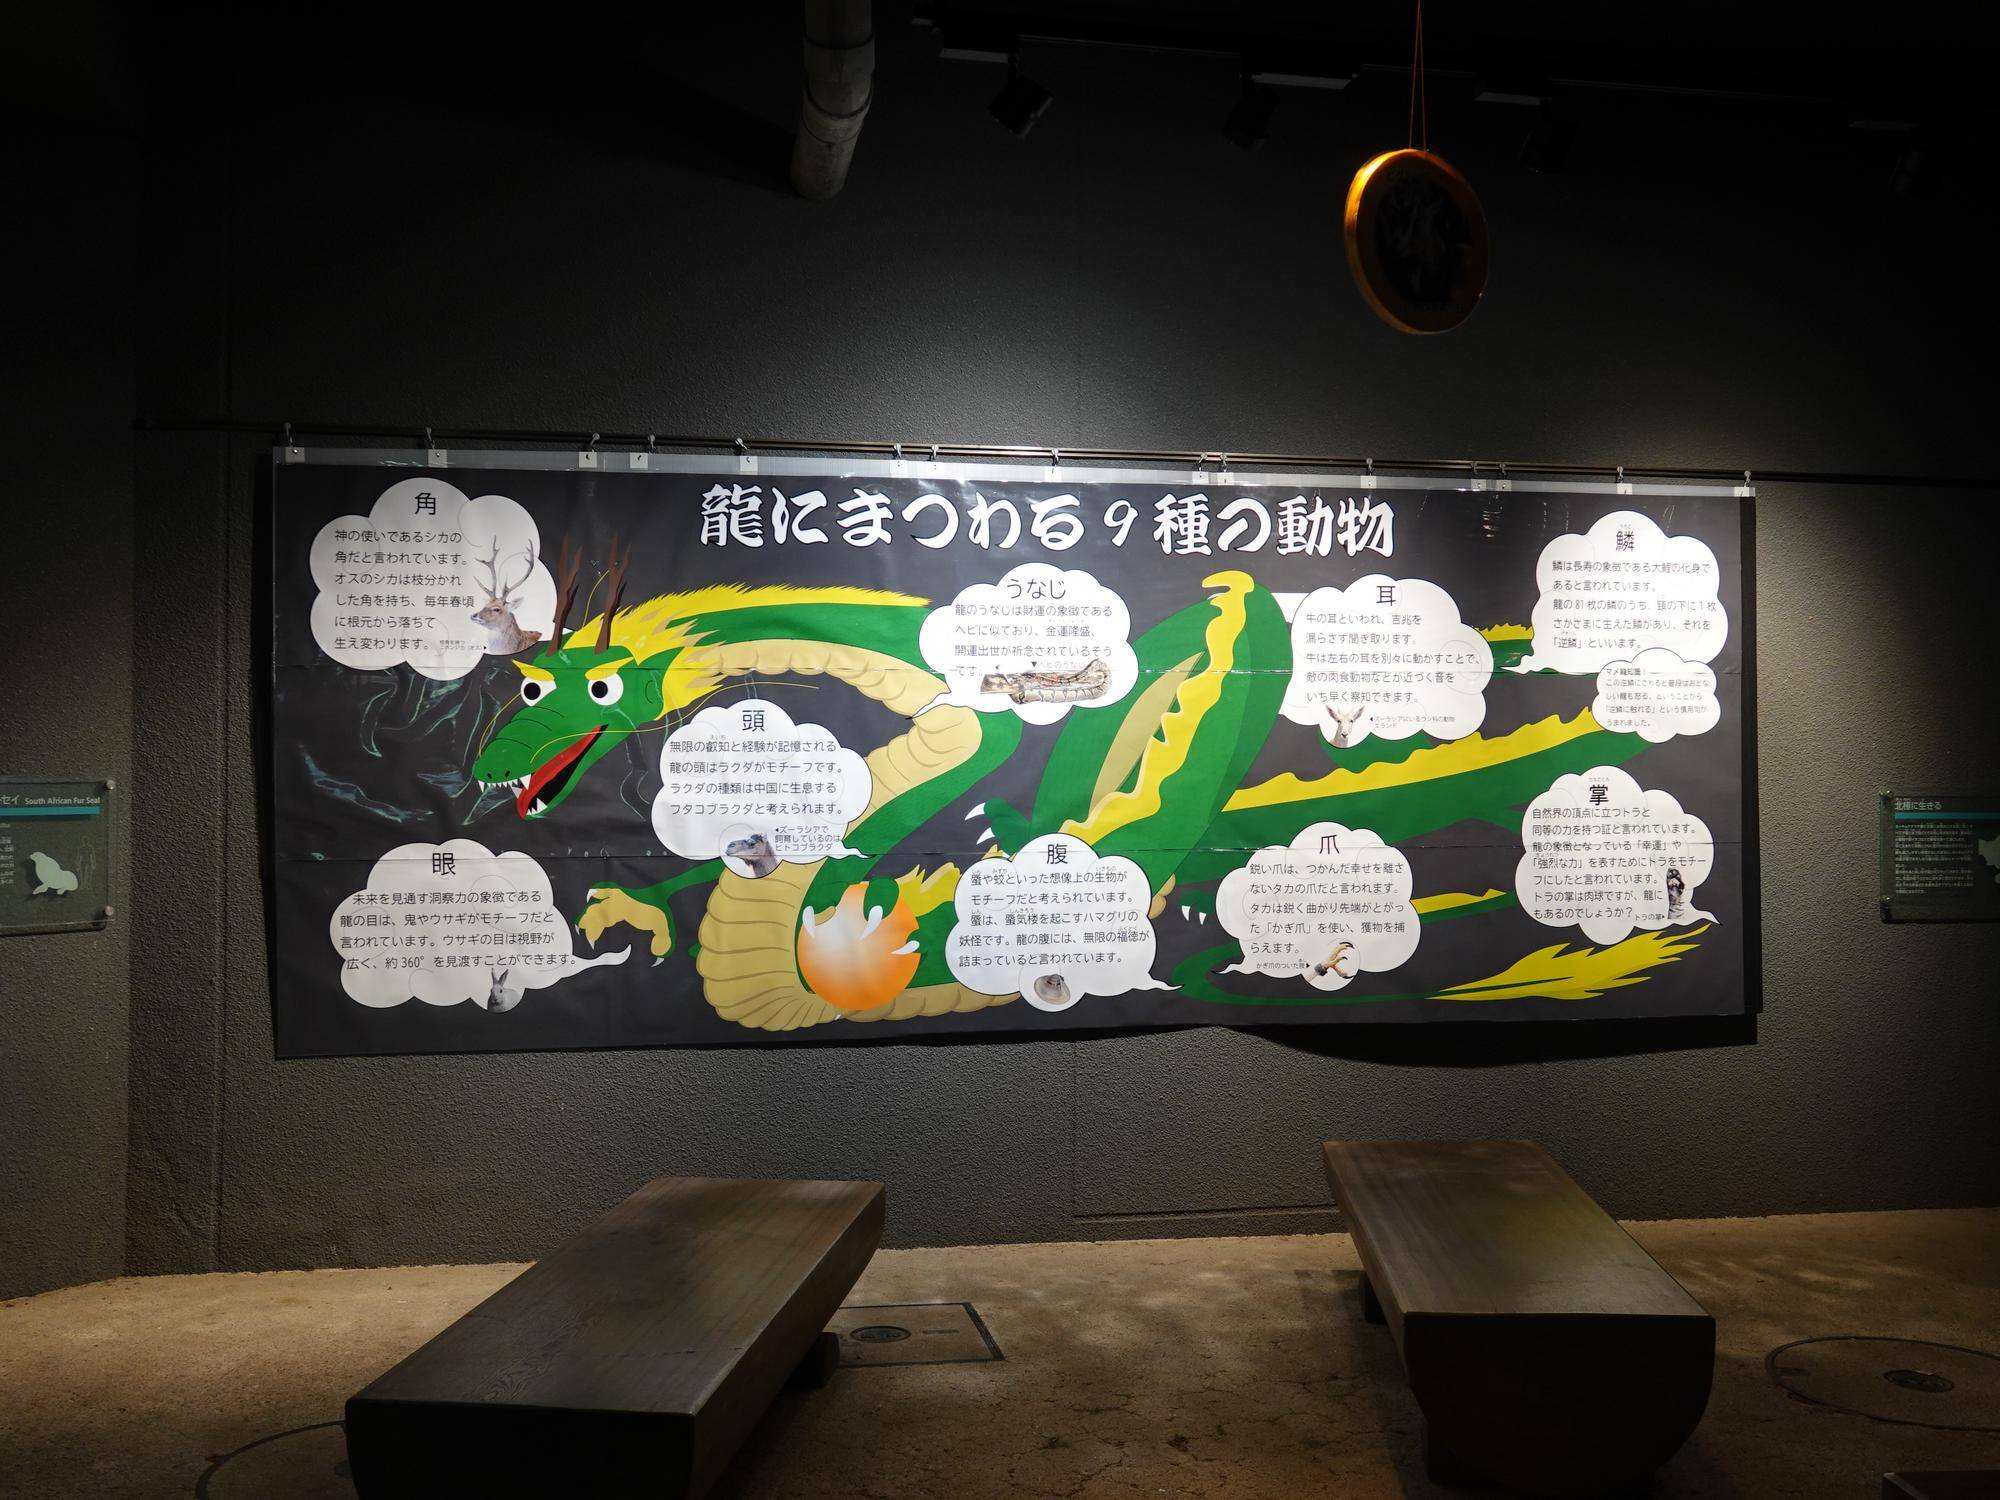 龍にまつわる9種の動物
角
神の使いであるシカの
角だと言われています。
オスのシカは枝分かれ
した角を持ち、毎年春頃
に根元から落ちて
生え変わります。
うなじ
龍のうなじは財運の象徴である
ヘビに似ており、金運隆盛、
開運出世が祈念されているそう
です。
▼ヘビのうなじ
耳
牛の耳といわれ、吉兆を
漏らさず聞き取ります。
牛は左右の耳を別々に動かすことで、
敵の肉食動物などが近づく音を
いち早く察知できます。
◀ズーラシアにいるウシ科の動物
エランド
鱗
うろこ
鱗は長寿の象徴である大鯉の化身で
あると言われています。
龍の81枚の鱗のうち、顎の下に1枚
さかさまに生えた鱗があり、それを
「逆鱗」といいます。
げきりん
マメ龍知識！
この逆鱗にさわられると普段はおとな
しい龍も怒る、ということから
「逆鱗に触れる」という慣用句が
うまれました。
頭
無限の叡知と経験が記憶される
えいち
龍の頭はラクダがモチーフです。
ラクダの種類は中国に生息する
フタコブラクダと考えられます。
◀ズーラシアで
飼育しているのは
ヒトコブラクダ
眼
未来を見通す洞察力の象徴である
龍の目は、鬼やウサギがモチーフだと
言われています。ウサギの目は視野が
広く、約360°を見渡すことができます。
腹
蜃や蛟といった想像上の生物が
しん
みずち
いきもの
モチーフだと考えられています。
蜃は、蜃気楼を起こすハマグリの
しん
しんきろう
妖怪です。龍の腹には、無限の福徳が
ふくとく
詰まっていると言われています。
爪
鋭い爪は、つかんだ幸せを離さ
ないタカの爪だと言われます。
タカは鋭く曲がり先端がとがっ
た「かぎ爪」を使い、獲物を捕
らえます。
かぎ爪のついた脚▶
掌
たなごころ
自然界の頂点に立つトラと
同等の力を持つ証と言われています。
龍の象徴となっている「幸運」や
「強烈な力」を表すためにトラをモチー
フにしたと言われています。
トラの掌は肉球ですが、龍に
もあるのでしょうか？
トラの掌▶
セイ South African Fur Seal
北極に生きる